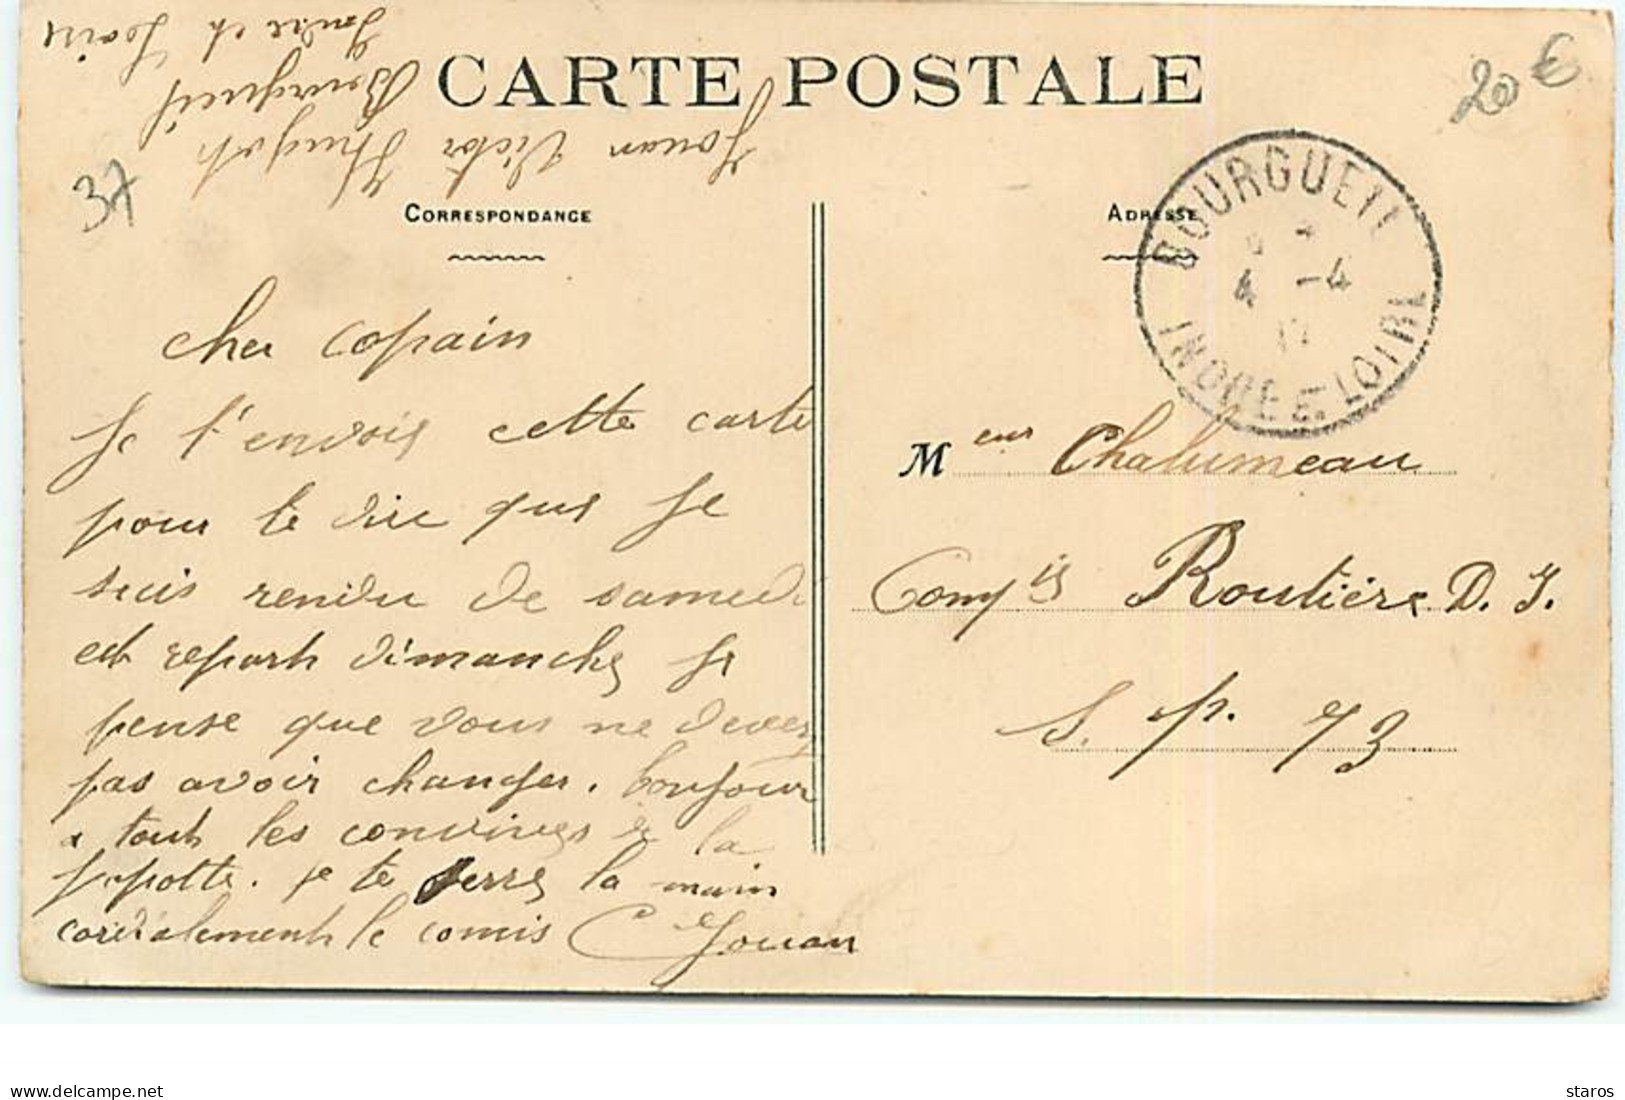 Jouan Victor Hugot
Bourgueil
Indre et Loire
CARTE POSTALE
20 €
37
CORRESPONDANCE
ADRESSE
BOURGUEIL
4 -4
17
INDRE-E.-LOIRE
cher copain
Je t'envois cette carte
pour te dire que je
suis rendu de samedi
et repart dimanche je
pense que vous ne devez
pas avoir changer. bonjour
a tout les convives de la
popotte. je te serre la main
cordialement le comis C Jouan
Meur Chalumeau
Compis Routière D. J.
S. p. 73
delcampe.net
staros